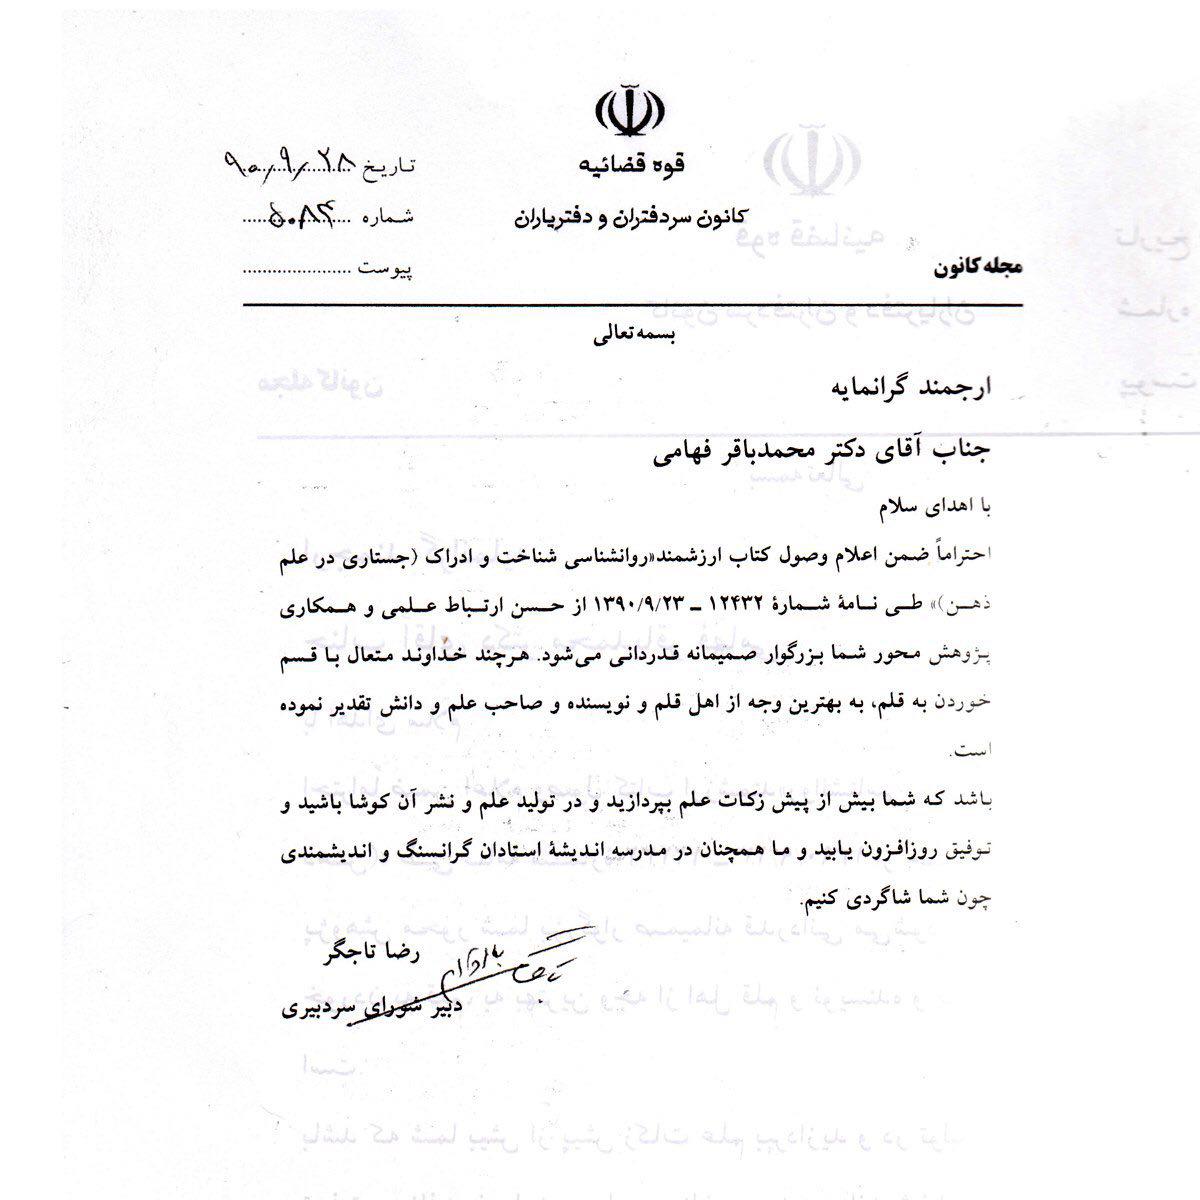 قوه قضائیه
کانون سردفتران و دفتریاران
مجله کانون
تاریخ ۹۰/۹/۲۸
شماره ۵۰۸۴
پیوست
بسمه تعالی
ارجمند گرانمایه
جناب آقای دکتر محمدباقر فهامی
با اهدای سلام
احتراماً ضمن اعلام وصول کتاب ارزشمند«روانشناسی شناخت و ادراک (جستاری در علم
ذهن)» طی نامۀ شمارۀ ۱۲۴۳۲ ـ ۱۳۹۰/۹/۲۳ از حسن ارتباط علمی و همکاری
پژوهش محور شما بزرگوار صمیمانه قدردانی می‌شود. هرچند خداوند متعال با قسم
خوردن به قلم، به بهترین وجه از اهل قلم و نویسنده و صاحب علم و دانش تقدیر نموده
است.
باشد که شما بیش از پیش زکات علم بپردازید و در تولید علم و نشر آن کوشا باشید و
توفیق روزافزون یابید و ما همچنان در مدرسه اندیشۀ استادان گرانسنگ و اندیشمندی
چون شما شاگردی کنیم.
رضا تاجگر
دبیر شورای سردبیری